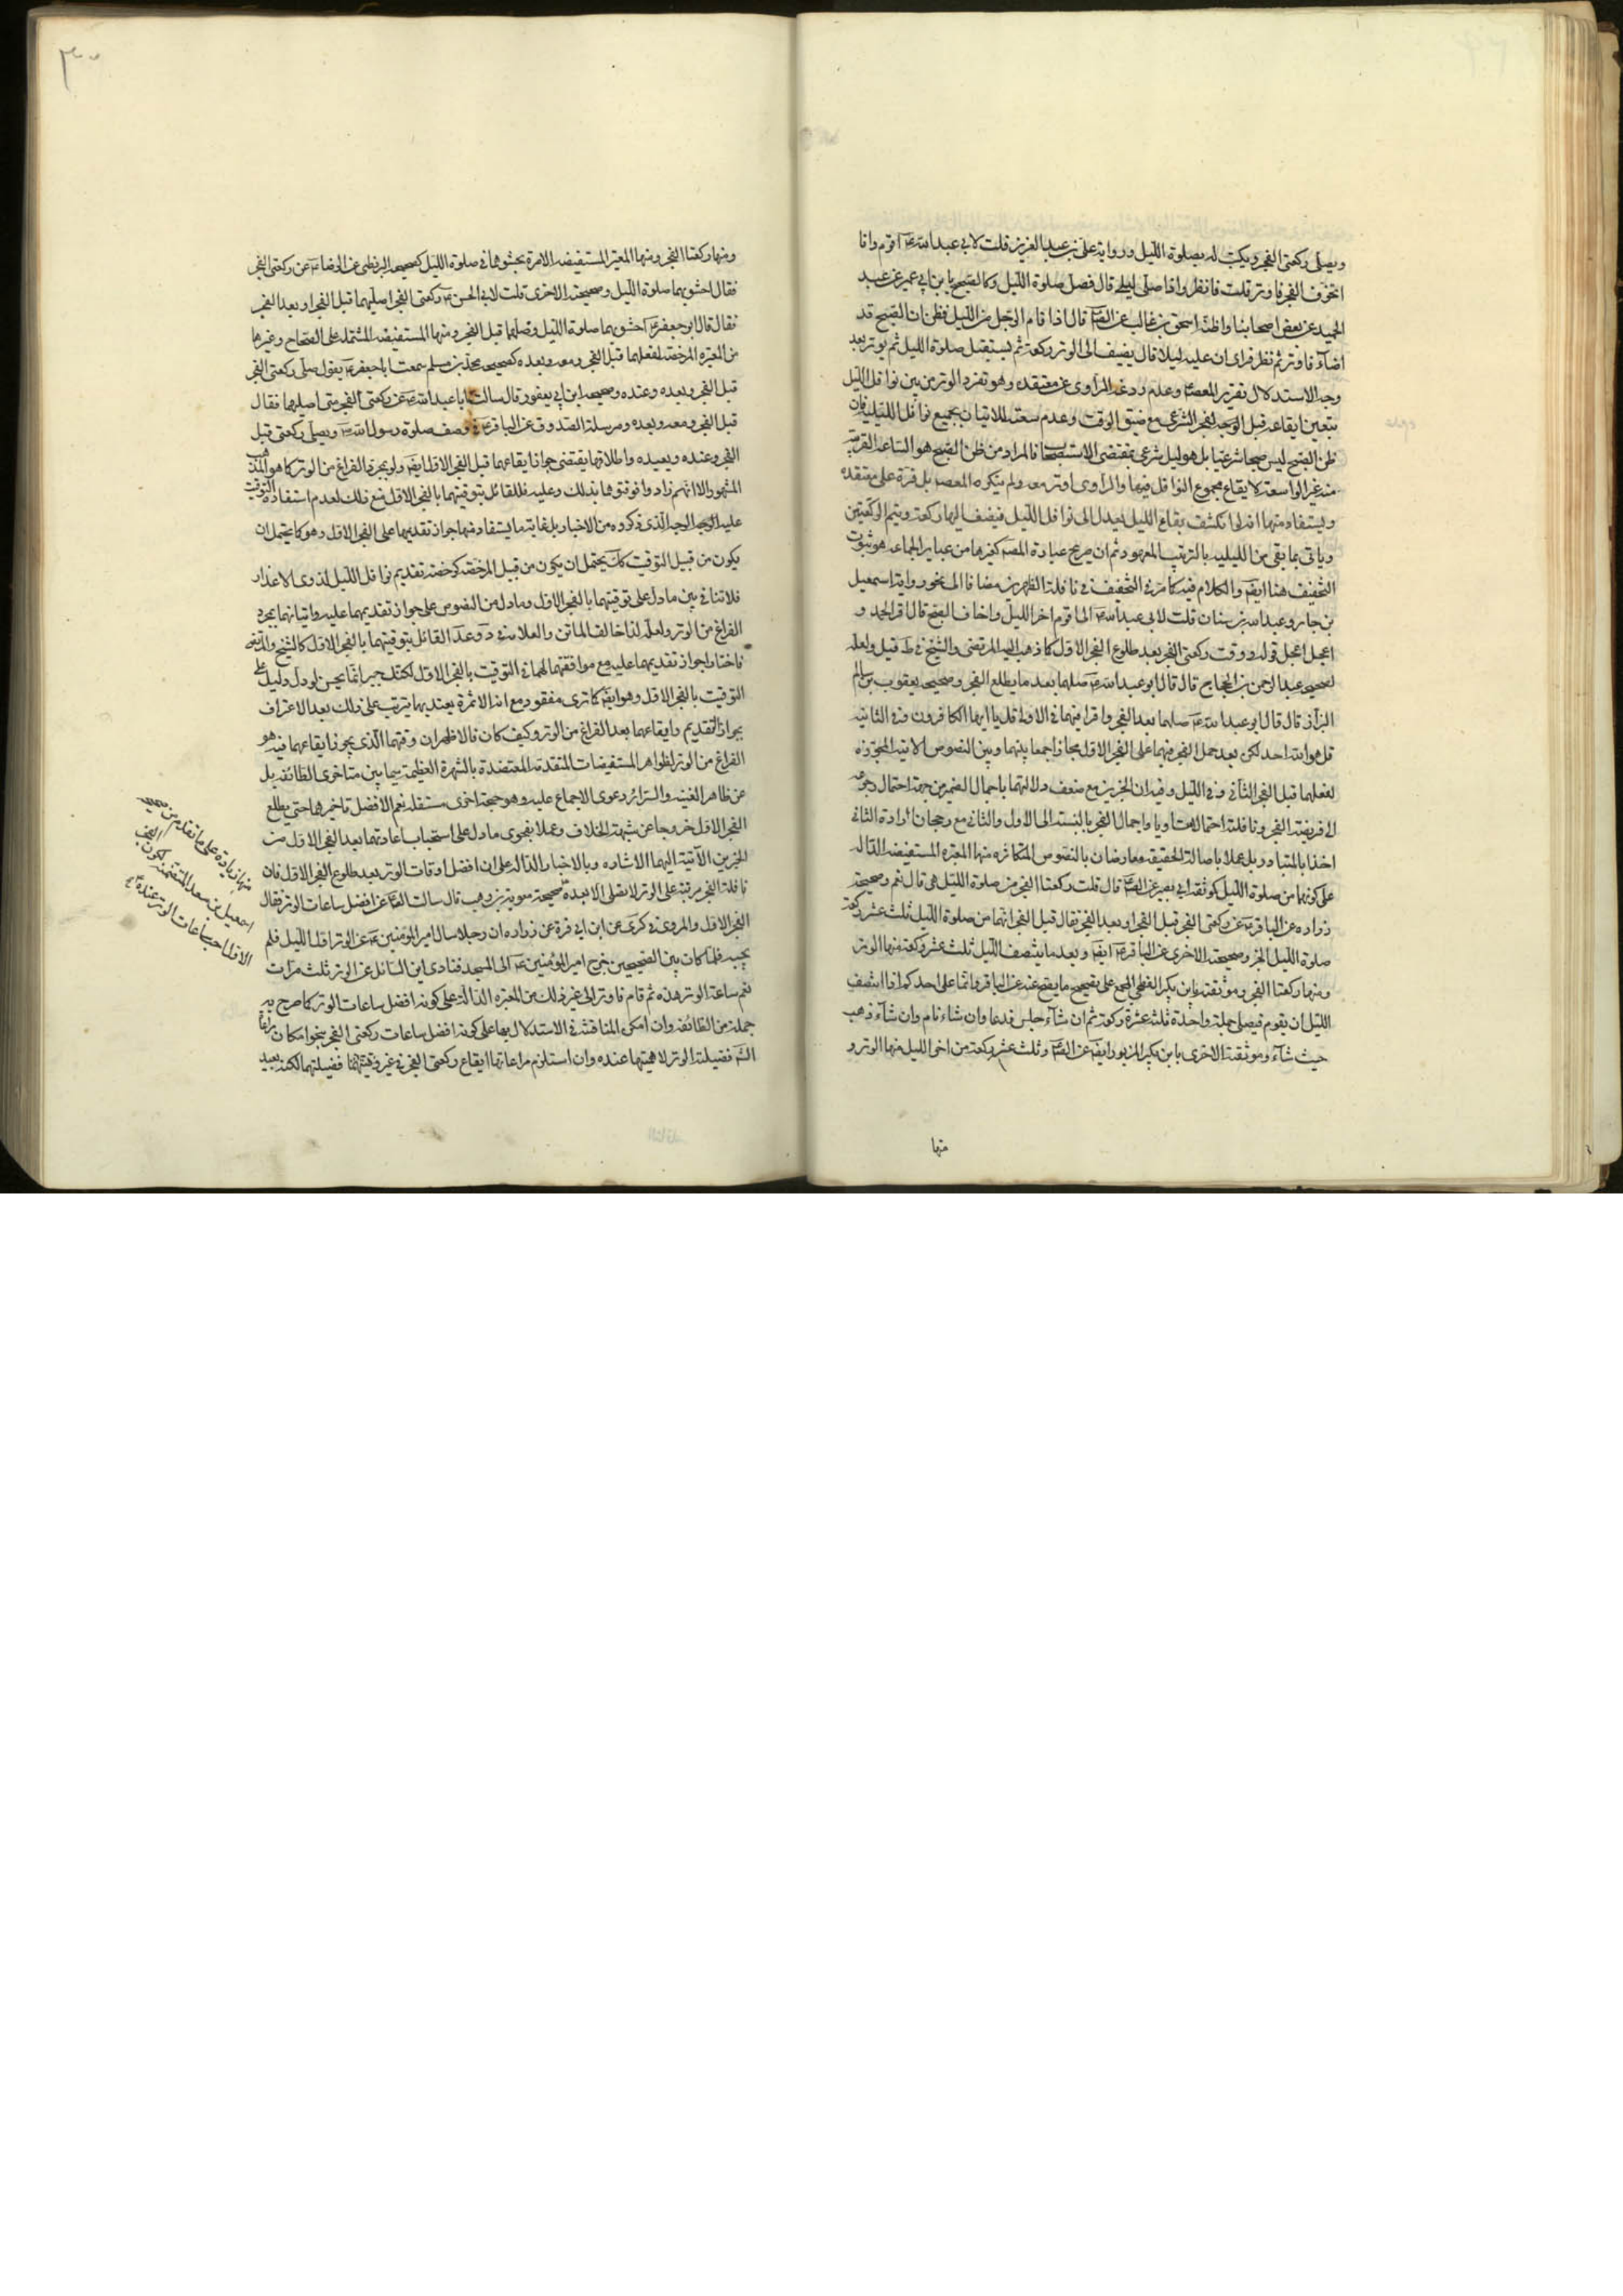 ويصلى ركعتى الفجر ويكتب له بصلوة الليل ورواية على بن عبد العزيز قلت لابى عبد الله ع اقوم وانا
اتخوف الفجر فاوتر قلت فانظر واذا صلى ليل قال فصل صلوة الليل وكالصحيح بابن ابى عمير عن عبد
الحميد عن بعض اصحابنا واظنه اسحق بن غالب عن الص قال اذا قام الرجل من الليل فظن ان الصبح قد
اضاء فاوتر ثم نظر فراى ان عليه ليلا قال يضيف الى الوتر ركعة ثم يستقبل صلوة الليل ثم يوتر بعد
وجه الاستدلال تقرير المعصوم وعدم ردعه الراوى عن معتقده وهو تفرد الوتر من بين نوافل الليل
بتعين ايقاعه قبل الفجر الشرعى مع ضيق الوقت وعدم سعته للاتيان بجميع نوافل الليلية فان
ظن الصبح ليس صبحا شرعيا بل هو ليل شرعى بمقتضى الاستصحاب فالمراد من ظن الصبح هو الساعة القريبة
منه غير الواسعة لايقاع مجموع النوافل فيها والراوى اوتر معه ولم ينكره المعصوم بل قرره على معتقده
ويستفاد منها انه لو انكشف بقاء الليل يعدل الى نوافل الليل فيضف اليها ركعة ويتم الركعتين
وياتى بما بقى من الليلية بالترتيب المعهود ثم ان صريح عبارة المصنف كغيرها من عباير الجماعة هو ثبوت
التخفيف هنا ايضا والكلام فيه كما مر فى التخفيف فى نافلة الظهرين مضافا الى نحو رواية اسمعيل
بن جابر وعبد الله بن سنان قلت لابى عبد الله ع انى اقوم اخر الليل واخاف الصبح قال اقر الحمد و
اعجل اعجل قوله ووقت ركعتى الفجر بعد طلوع الفجر الاول كما ذهب اليه المرتضى والشيخ فى ط قيل ولعله
لصحيح عبد الرحمن بن الحجاج قال قال ابو عبد الله ع صلهما بعد ما يطلع الفجر وصحيح يعقوب بن سالم
البزاز قال قال ابو عبد الله ع صلهما بعد الفجر واقرا فيهما فى الاولى قل يا ايها الكافرون وفى الثانية
قل هو الله احد لكن بعد حمل الفجر فيهما على الفجر الاول مجازا جمعا بينهما وبين النصوص الاتية المجوزة
لفعلهما قبل الفجر الثانى وفى الليل وفيه ان الخبرين مع ضعف دلالتهما باجمال الضمير من جهة احتمال رجوعه
الى فريضة الفجر ونافلته احتمالا متساويا واجمال الفجر بالنسبة الى الاول والثانى مع رجحان ارادة الثانى
اخذا بالمتبادر بل عملا باصالة الحقيقة معارضان بالنصوص المتكاثره منها المعتبره المستفيضه الدالة
على كونهما من صلوة الليل كموثقه ابى بصير عن الص قال قلت ركعتا الفجر من صلوة الليل هى قال نعم وصحيحة
زراره عن الباقر ع عن ركعتى الفجر قبل الفجر او بعد الفجر فقال قبل الفجر انهما من صلوة الليل ثلث عشر ركعة
صلوة الليل الخبر وصحيحته الاخرى عن الباقر ع ايضا وبعد ما ينتصف الليل ثلث عشر ركعة منها الوتر
ومنها ركعتا الفجر وموثقته بابن بكير الفطحى المجمع على تصحيح ما يصح عنه عن الباقر وانما على احدكم اذا انتصف
الليل ان يقوم فيصلى جملة واحدة ثلثة عشرة ركعة ثم ان شاء جلس فدعا وان شاء نام وان شاء ذهب
حيث شاء وموثقته الاخرى بابن بكير المزبور ايضا عن الص وثلث عشر ركعة من اخر الليل منها الوتر و
منها
٣٠
ومنها ركعتا الفجر ومنها المعتبرة المستفيضه الامرة بحشوهما فى صلوة الليل كصحيحه البزنطى عن الرضا ع عن ركعتى الفجر
فقال احشو بهما صلوة الليل وصحيحته الاخرى قلت لابى الحسن ع ركعتى الفجر اصليهما قبل الفجر او بعد الفجر
فقال قال ابو جعفر ع احشو بهما صلوة الليل وصلهما قبل الفجر ومنها المستفيضه المشتملة على الصحاح وغيرها
من المعتبره المرخصة لفعلهما قبل الفجر ومعه وبعده كصحيحه محمد بن مسلم سمعت ابا جعفر ع يقول صل ركعتى الفجر
قبل الفجر وبعده وعنده وصحيحه ابن ابى يعفور قال سالت ابا عبد الله ع عن ركعتى الفجر متى اصليهما فقال
قبل الفجر ومعه وبعده ومرسلة الصدوق عن الباقر ع فى وصف صلوة رسول الله ص ويصلى ركعتى قبل
الفجر وعنده وبعيده واطلاقها يقتضى جواز ايقاعهما قبل الفجر الاول ايضا ولو بمجرد الفراغ من الوتر كما هو المذهب
المشهور الا انهم زادوا فوقتوهما بذلك وعليه فللقائل بتوقيتهما بالفجر الاول منع ذلك لعدم استفادة التوقيت
عليه الوجه الذى ذكروه من الاخبار بل غاية ما يستفاد منها جواز تقديمهما على الفجر الاول وهو كما يحتمل ان
يكون من قبيل التوقيت كك يحتمل ان يكون من قبيل الرخصة كرخصة تقديم نوافل الليل لذوى الاعذار
فلا تنافى بين ما دل على توقيتهما بالفجر الاول وما دل من النصوص على جواز تقديمهما عليه واتيانهما بمجرد
الفراغ من الوتر ولعله لذا خالف الماتن والعلامة فى وعد القائل بتوقيتهما بالفجر الاول كالشيخ والمرتضى
فاختارا جواز تقديمهما عليه مع موافقتهما لهما فى التوقيت بالفجر الاول لكنك خبير انما يحسن لو دل دليل على
التوقيت بالفجر الاول وهو ايضا كما ترى مفقود مع انه لا ثمرة يعتد بها يترتب على ذلك بعد الاعتراف
بجواز التقديم وايقاعهما بعد الفراغ من الوتر وكيف كان فالاظهر ان وقتهما الذى يجوز ايقاعهما فيه هو
الفراغ من الوتر لظواهر المستفيضات المتقدمة المعتضدة بالشهرة العظيمة سيما بين متاخرى الطائفه بل
عن ظاهر الغنيه والسرائر دعوى الاجماع عليه وهو حجة اخرى مستقله نعم الافضل تاخيرهما حتى يطلع
الفجر الاول خروجا عن شبهة الخلاف وعملا بفحوى ما دل على استحباب اعادتهما بعد الفجر الاول من
الخبرين الآتية اليهما الاشاره وبالاخبار الدالة على ان افضل اوقات الوتر بعد طلوع الفجر الاول فان
نافلة الفجر مرتبة على الوتر لا تصلى الا بعده صحيحة معوية بن وهب قال سالت الص عن افضل ساعات الوتر فقال
الفجر الاول والمروى فى كرى عن ابن ابى قرة عن زراره ان رجلا سال امير المؤمنين ع عن الوتر اول الليل فلم
يجبه فلما كان بين الصبحين خرج امير المؤمنين ع الى المسجد فنادى اين السائل عن الوتر ثلث مرات
نعم ساعة الوتر هذه ثم قام فاوتر الى غير ذلك من المعتبره الدالة على كونه افضل ساعات الوتر كما صرح به
جملة من الطائفه وان امكن المناقشة فى الاستدلال بها على كونه افضل ساعات ركعتى الفجر بنحو امكان
فضيلة الوتر لاهميتها عنده وان استلزم مراعاتها ايقاع ركعتى الفجر فى غير وقت فضيلتهما لكنه بعيد
منها زيادة على ما تقدم من
اسمعيل بن سعد المتضمنة لكون الفجر
الاول احب ساعات الوتر عنده ع